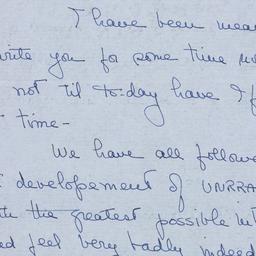 I have been mean
write you for some time
not 'til to-day have I f
time -
We have all followe
developement of UNRRA
the greatest possible int
feel very badly indeed